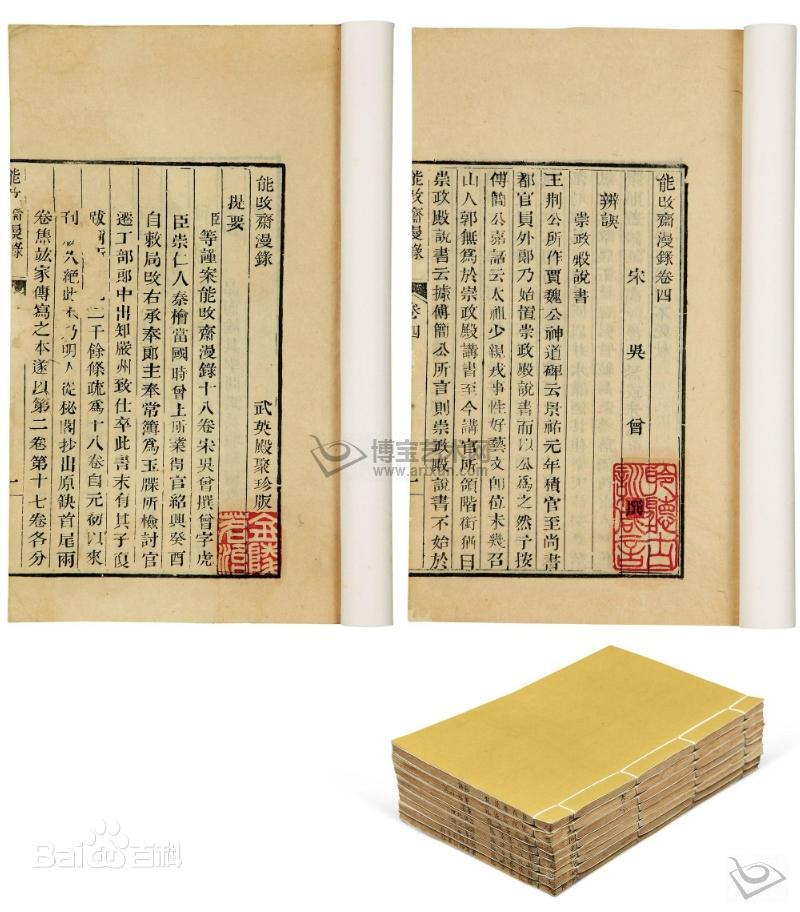 能改齋漫錄 武英殿聚珍版
提要
臣等謹案能改齋漫錄十八卷宋吳曾撰曾字虎
臣崇仁人秦檜當國時曾上所業得官紹興癸酉
自敕局改右承奉郎主奉常簿爲玉牒所檢討官
遷工部郎中出知嚴州致仕卒此書末有其子復
跋 二千餘條疏爲十八卷自元初以來
刊 久絕此本乃明人從秘閣抄出原缺首尾兩
卷焦竑家傳寫之本遂以第二卷第十七卷各分
能改齋漫錄
一
能改齋漫錄卷四
宋 吳曾 撰
辨誤
崇政殿說書
王荊公所作賈魏公神道碑云景祐元年積官至尚書
都官員外郎乃始置崇政殿說書而以公爲之然予按
傅簡公嘉話云太祖少親戎事性好藝文卽位未幾召
山人郭無爲於崇政殿講書至今講官所領階銜猶曰
崇政殿說書云據傅簡公所言則崇政殿說書不始於
能改齋漫錄 卷四
一
博宝艺术网
www.artxun.com
Bai百科